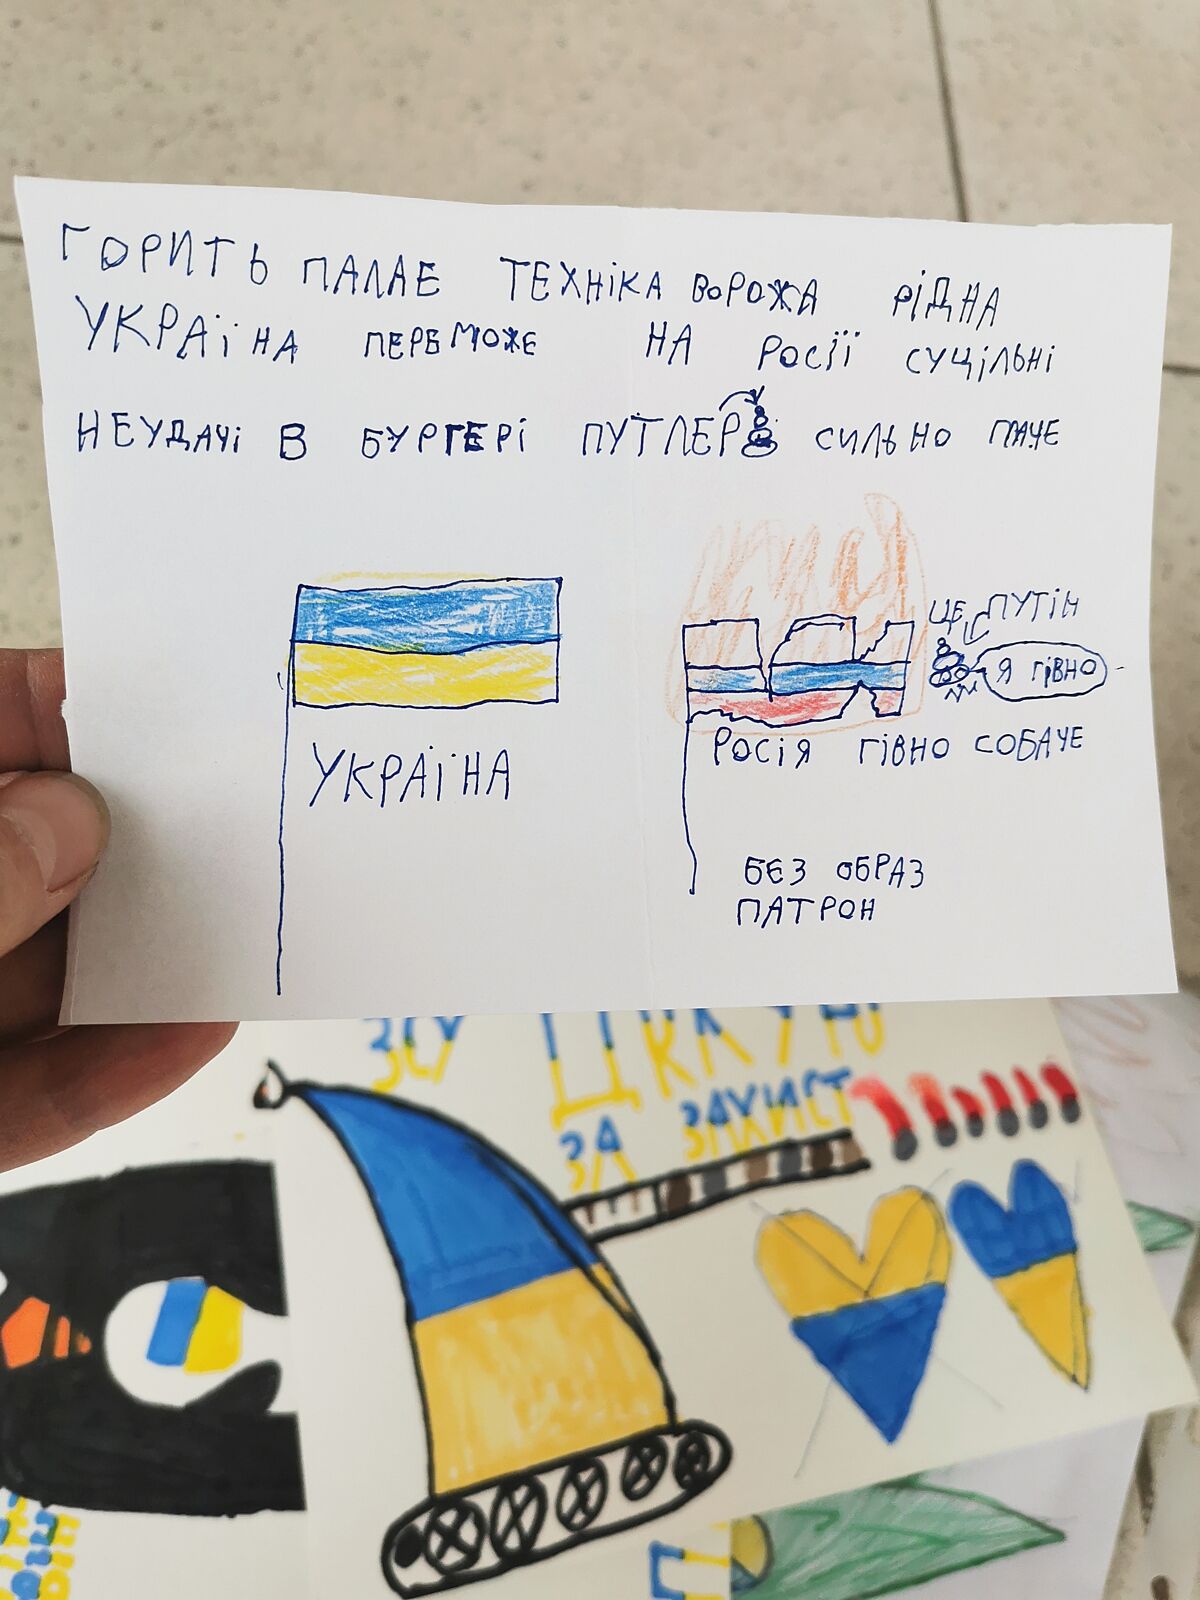 ГОРИТЬ ПАЛАЄ ТЕХНІКА ВОРОЖА РІДНА
УКРАЇНА ПЕРЕМОЖЕ НА РОСІЇ СУЦІЛЬНІ
НЕУДАЧІ В БУРГЕРІ ПУТЛЕР СИЛЬНО ПАЧЕ
УКРАЇНА
ЦЕ ПУТІН
Я ГІВНО
РОСІЯ ГІВНО СОБАЧЕ
БЕЗ ОБРАЗ
ПАТРОН
ЗСУ
ЗА ЗАХИСТ